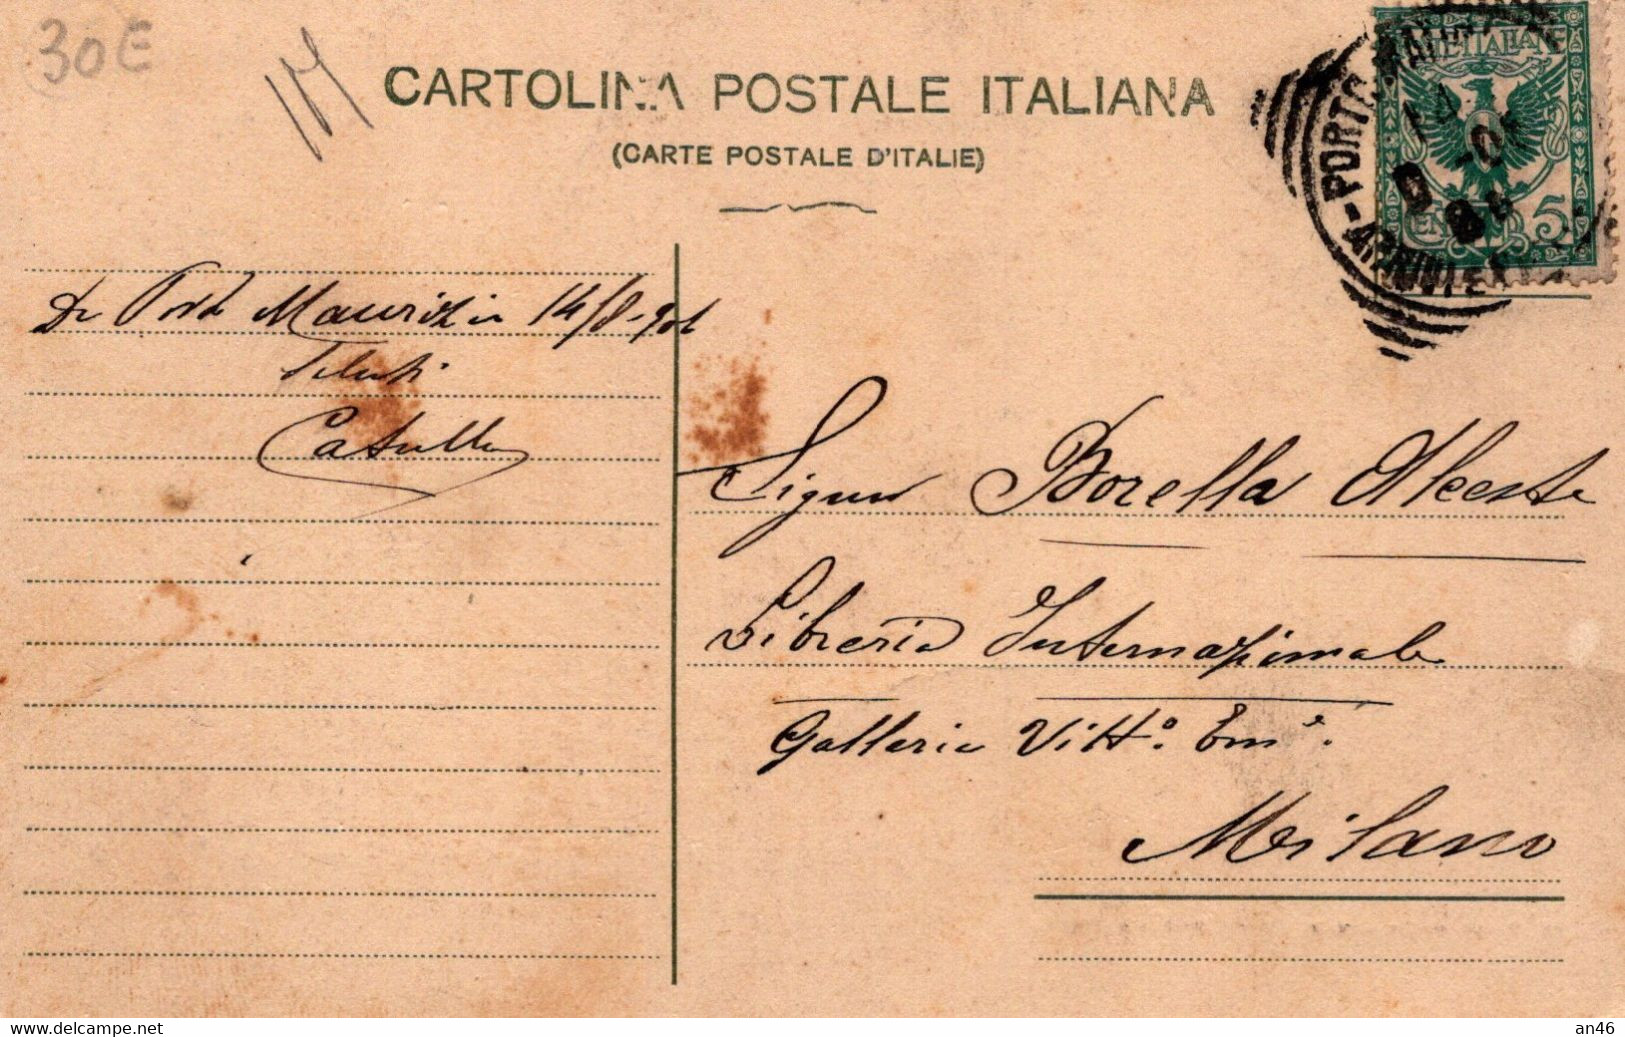 30E
CARTOLINA POSTALE ITALIANA
(CARTE POSTALE D'ITALIE)
PORTO MAURIZIO
14
5
Da Porto Maurizio 14/8-906
Saluti
Catullo
Signor Borella Alceste
Libreria Internazionale
Galleria Vitt.º Em.e
Milano
delcampe.net
an46